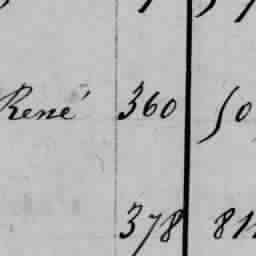 René 360 50
378 81